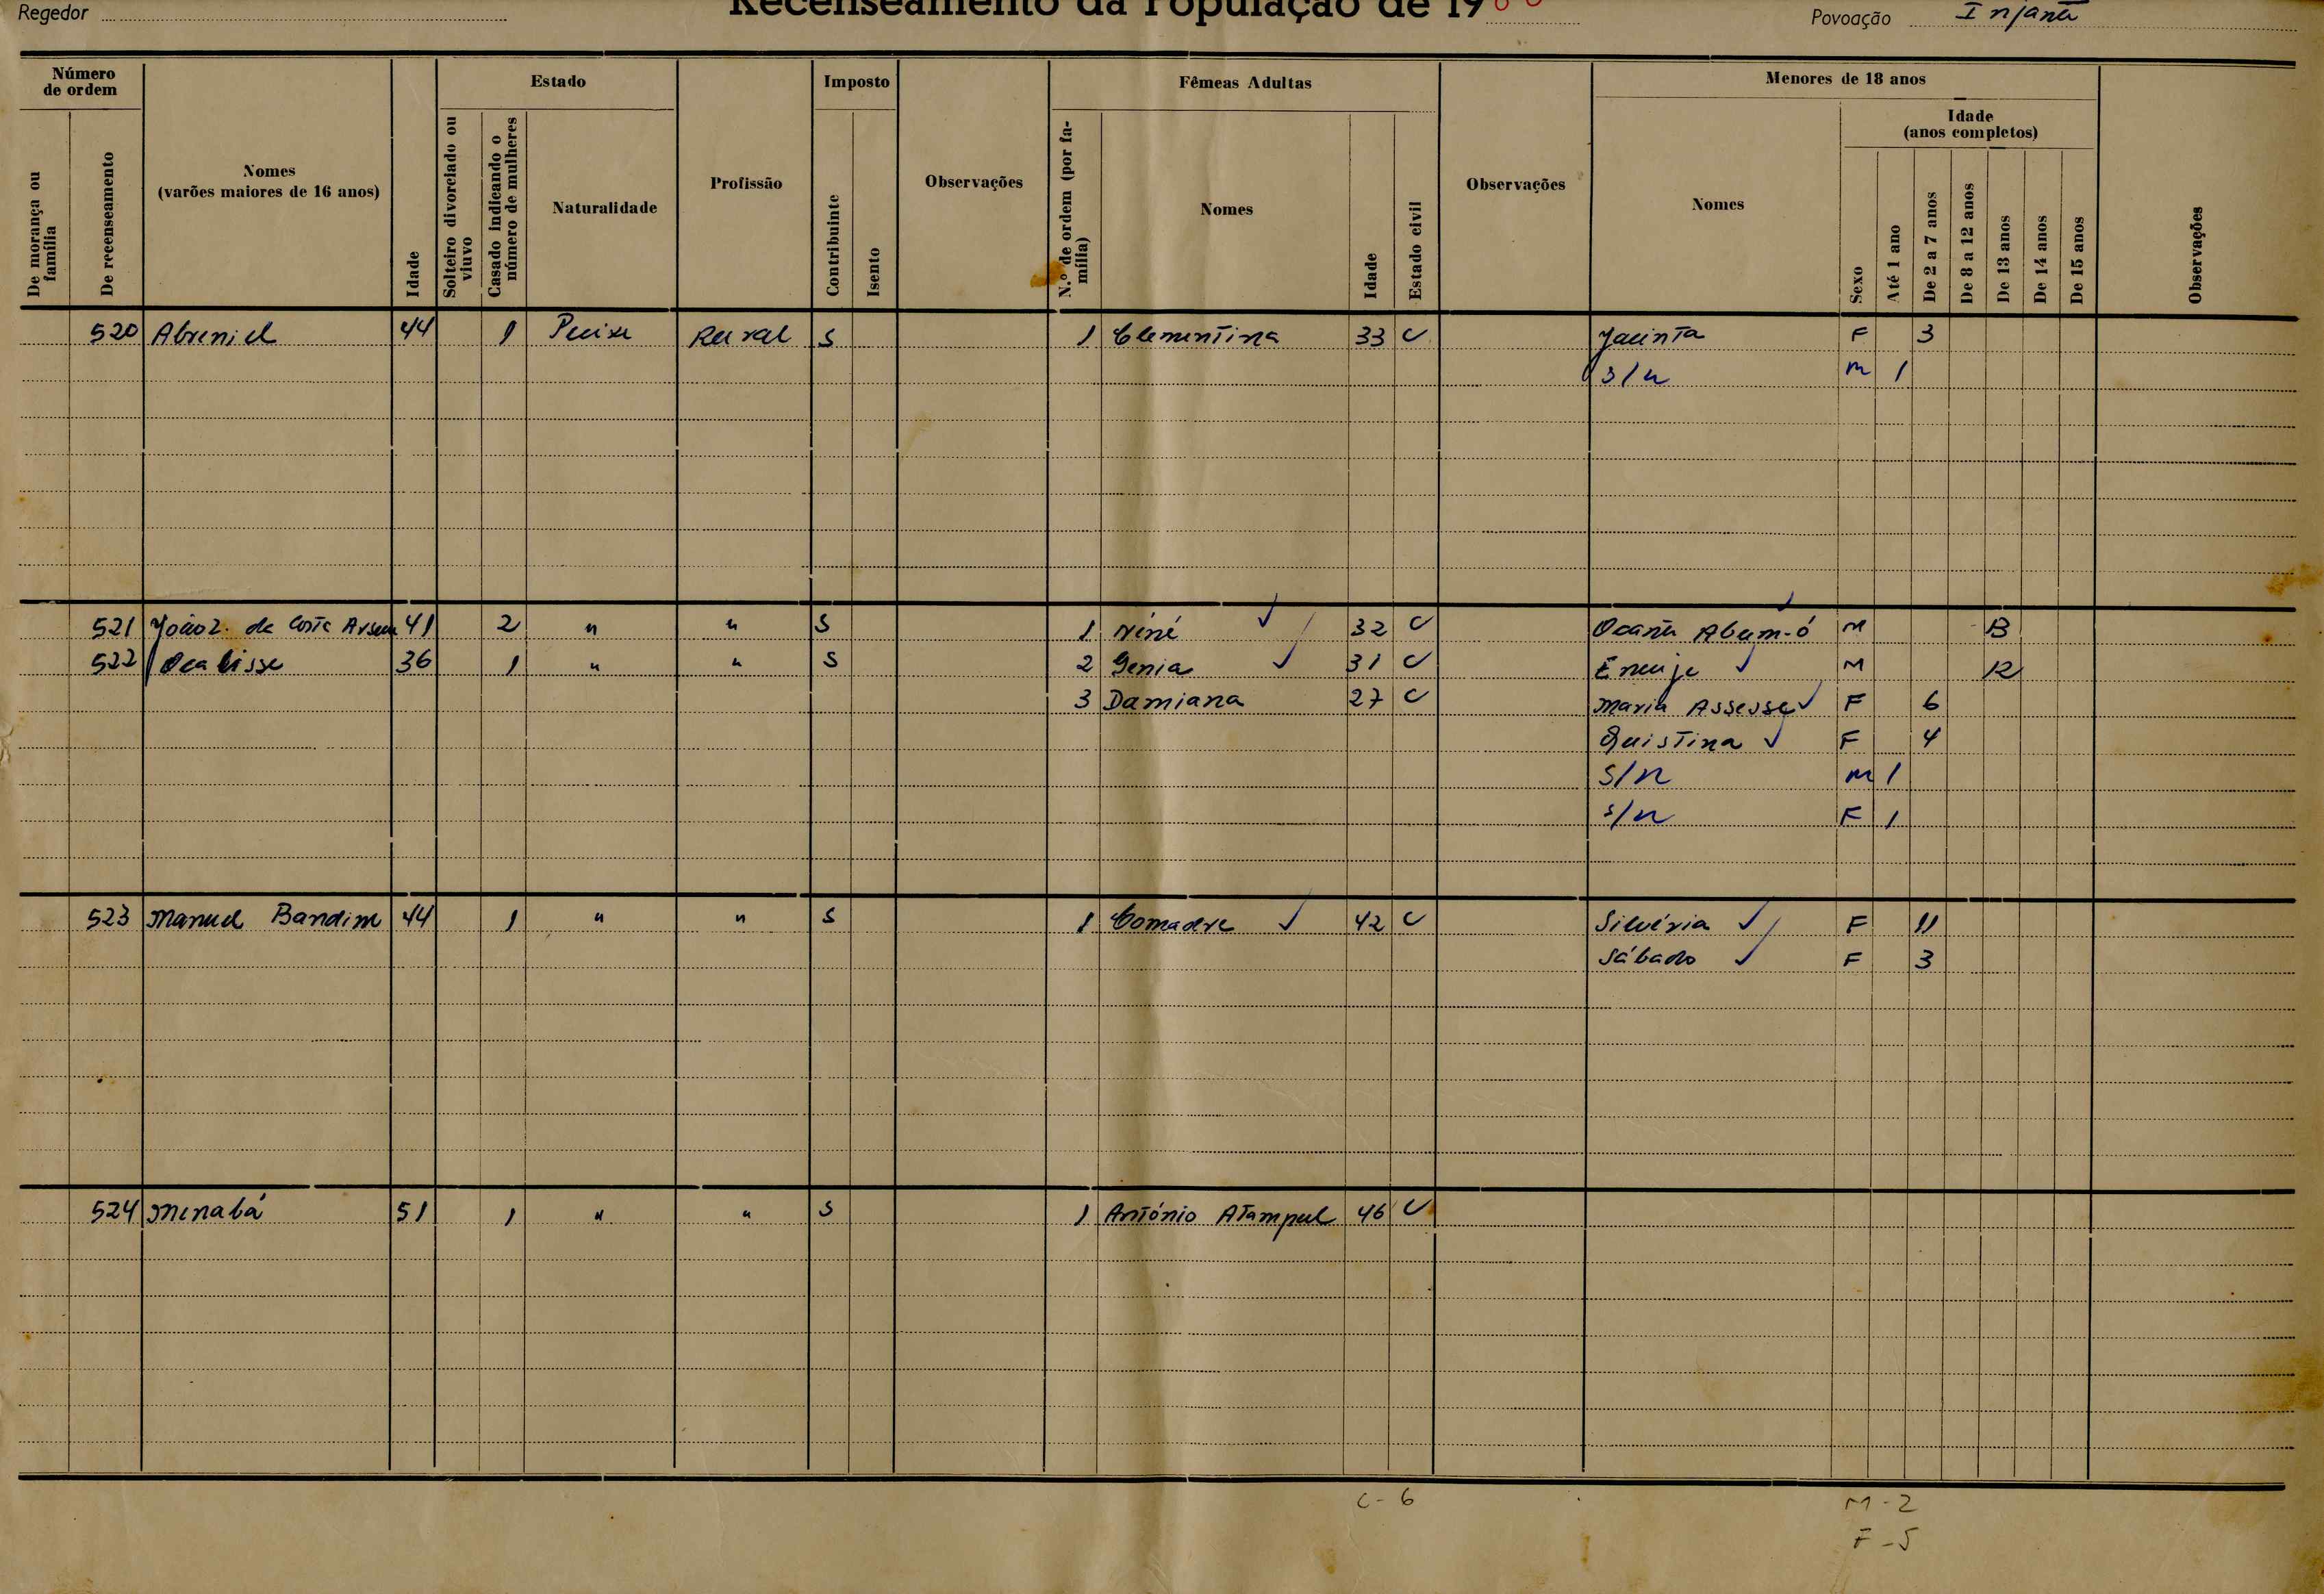 Regedor
Recenseamento da População de 19
Povoação Injanã
Número de ordem
De morança ou família
De recenseamento
Nomes
(varões maiores de 16 anos)
Idade
Estado
Solteiro divorciado ou viuvo
Casado indicando o número de mulheres
Naturalidade
Profissão
Imposto
Contribuinte
Isento
Observações
Fêmeas Adultas
N.º de ordem (por família)
Nomes
Idade
Estado civil
Observações
Menores de 18 anos
Nomes
Sexo
Idade
(anos completos)
Até 1 ano
De 2 a 7 anos
De 8 a 12 anos
De 13 anos
De 14 anos
De 15 anos
Observações
520 Abreniel 44 1 Rural S 1 Clementina 33 C Jacinta F 3
S/n M 1
521 João da Costa 41 2 " " S 1 Niné 32 C M 13
522 Ocalisse 36 1 " " S 2 Genia 31 C M 12
3 Damiana 27 C Maria Assesse F 6
Quistina F 4
S/n M 1
S/n F 1
523 Manuel Bandim 44 1 " " S 1 Comadre 42 C Silvéria F 11
Sábado F 3
524 Menabá 51 1 " " S 1 António Atampul 46 C
C - 6 M - 2
F - 5